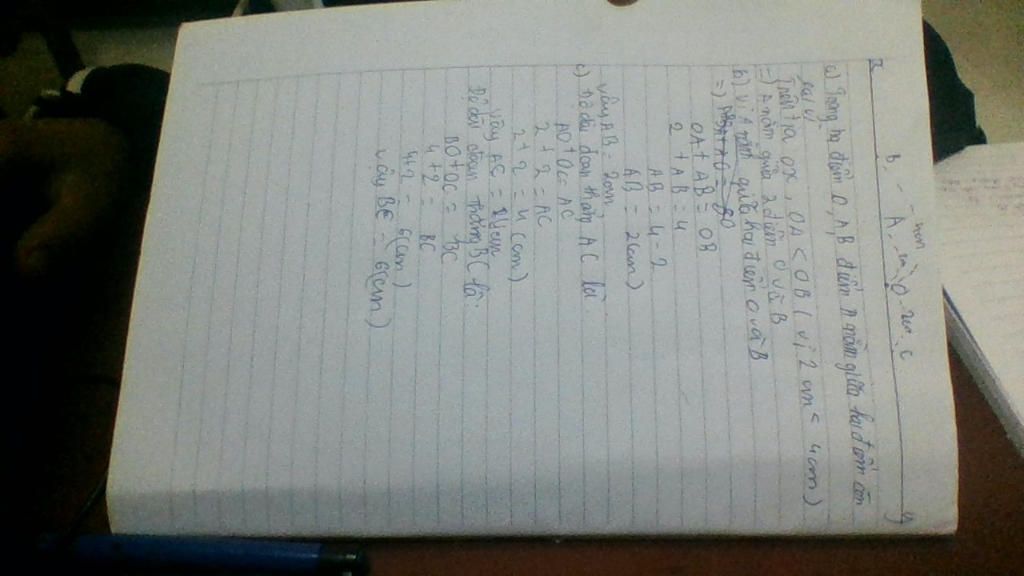 x B A 2cm O 2cm C y
4cm
a) Trong ba điểm O, A, B điểm A nằm giữa hai điểm còn
lại vì
Trên tia Ox, OA < OB ( vì 2 cm < 4cm )
=) A nằm giữa 2 điểm O và B
b) Vì A nằm giữa hai điểm O và B
=)
OA + AB = OB
2 + AB = 4
AB = 4 - 2
AB = 2(cm)
Vậy AB = 2cm
c) Độ dài đoạn thẳng AC là
AO + OC = AC
2 + 2 = AC
2 + 2 = 4 (cm)
Vậy AC = 4cm
Độ dài đoạn thẳng BC là:
BO + OC = BC
4 + 2 = BC
4+2 = 6(cm)
Vậy BC = 6(cm)